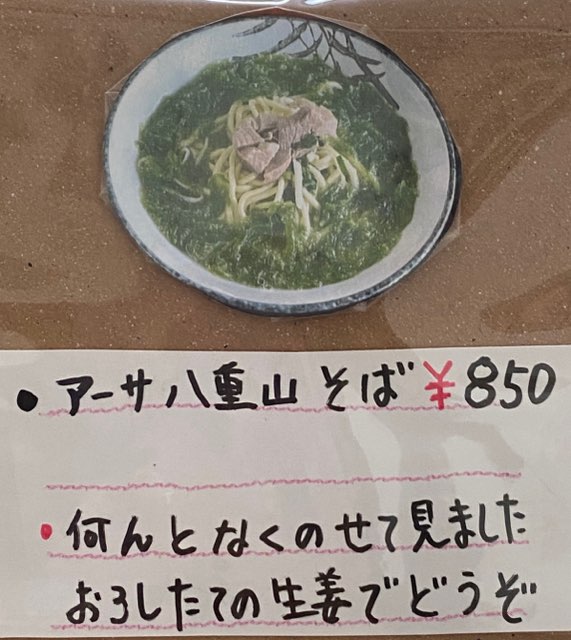 • アーサ八重山そば ¥850
• 何んとなくのせて見ました
おろしたての生姜でどうぞ